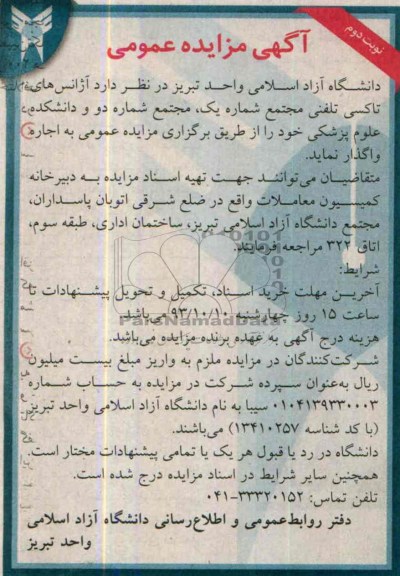 نوبت دوم
آگهی مزایده عمومی
دانشگاه آزاد اسلامی واحد تبریز در نظر دارد آژانس‌های
تاکسی تلفنی مجتمع شماره یک، مجتمع شماره دو و دانشکده
علوم پزشکی خود را از طریق برگزاری مزایده عمومی به اجاره
واگذار نماید.
متقاضیان می‌توانند جهت تهیه اسناد مزایده به دبیرخانه
کمیسیون معاملات واقع در ضلع شرقی اتوبان پاسداران،
مجتمع دانشگاه آزاد اسلامی تبریز، ساختمان اداری، طبقه سوم،
اتاق ۳۲۲ مراجعه فرمایند.
شرایط:
آخرین مهلت خرید اسناد، تکمیل و تحویل پیشنهادات تا
ساعت ۱۵ روز چهارشنبه ۹۳/۱۰/۱۰ می‌باشد.
ParsNamadData
هزینه درج آگهی به عهده برنده مزایده می‌باشد.
شرکت‌کنندگان در مزایده ملزم به واریز مبلغ بیست میلیون
ریال به‌عنوان سپرده شرکت در مزایده به حساب شماره
۰۱۰۴۱۳۹۳۳۰۰۰۳ سیبا به نام دانشگاه آزاد اسلامی واحد تبریز
(با کد شناسه ۱۳۴۱۰۲۵۷) می‌باشند.
دانشگاه در رد یا قبول هر یک یا تمامی پیشنهادات مختار است.
همچنین سایر شرایط در اسناد مزایده درج شده است.
تلفن تماس: ۳۳۳۲۰۱۵۲-۰۴۱
دفتر روابط‌عمومی و اطلاع‌رسانی دانشگاه آزاد اسلامی
واحد تبریز